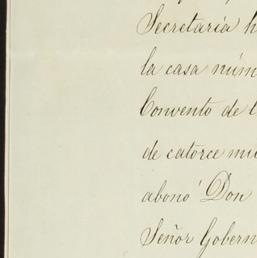 Secretaría h
la casa núm
Convento de l
de catorce mi
abonó Don
Señor Gobern